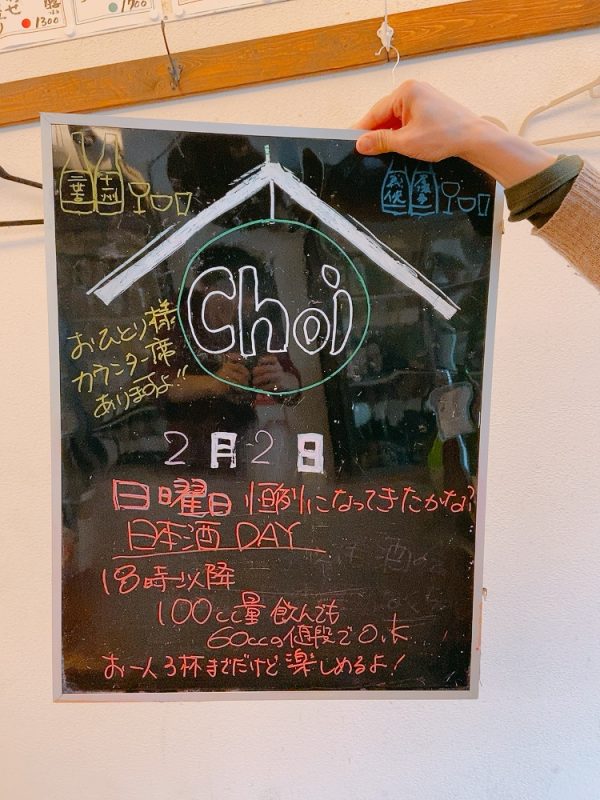 1300
1700
Choi
おひとり様
カウンター席
ありますよ!!
2月2日
日曜日 恒例になってきたかな?
日本酒 DAY
18時以降
100cc量 飲んでも
60ccの値段でOK
お一人3杯までだけど 楽しめるよ!